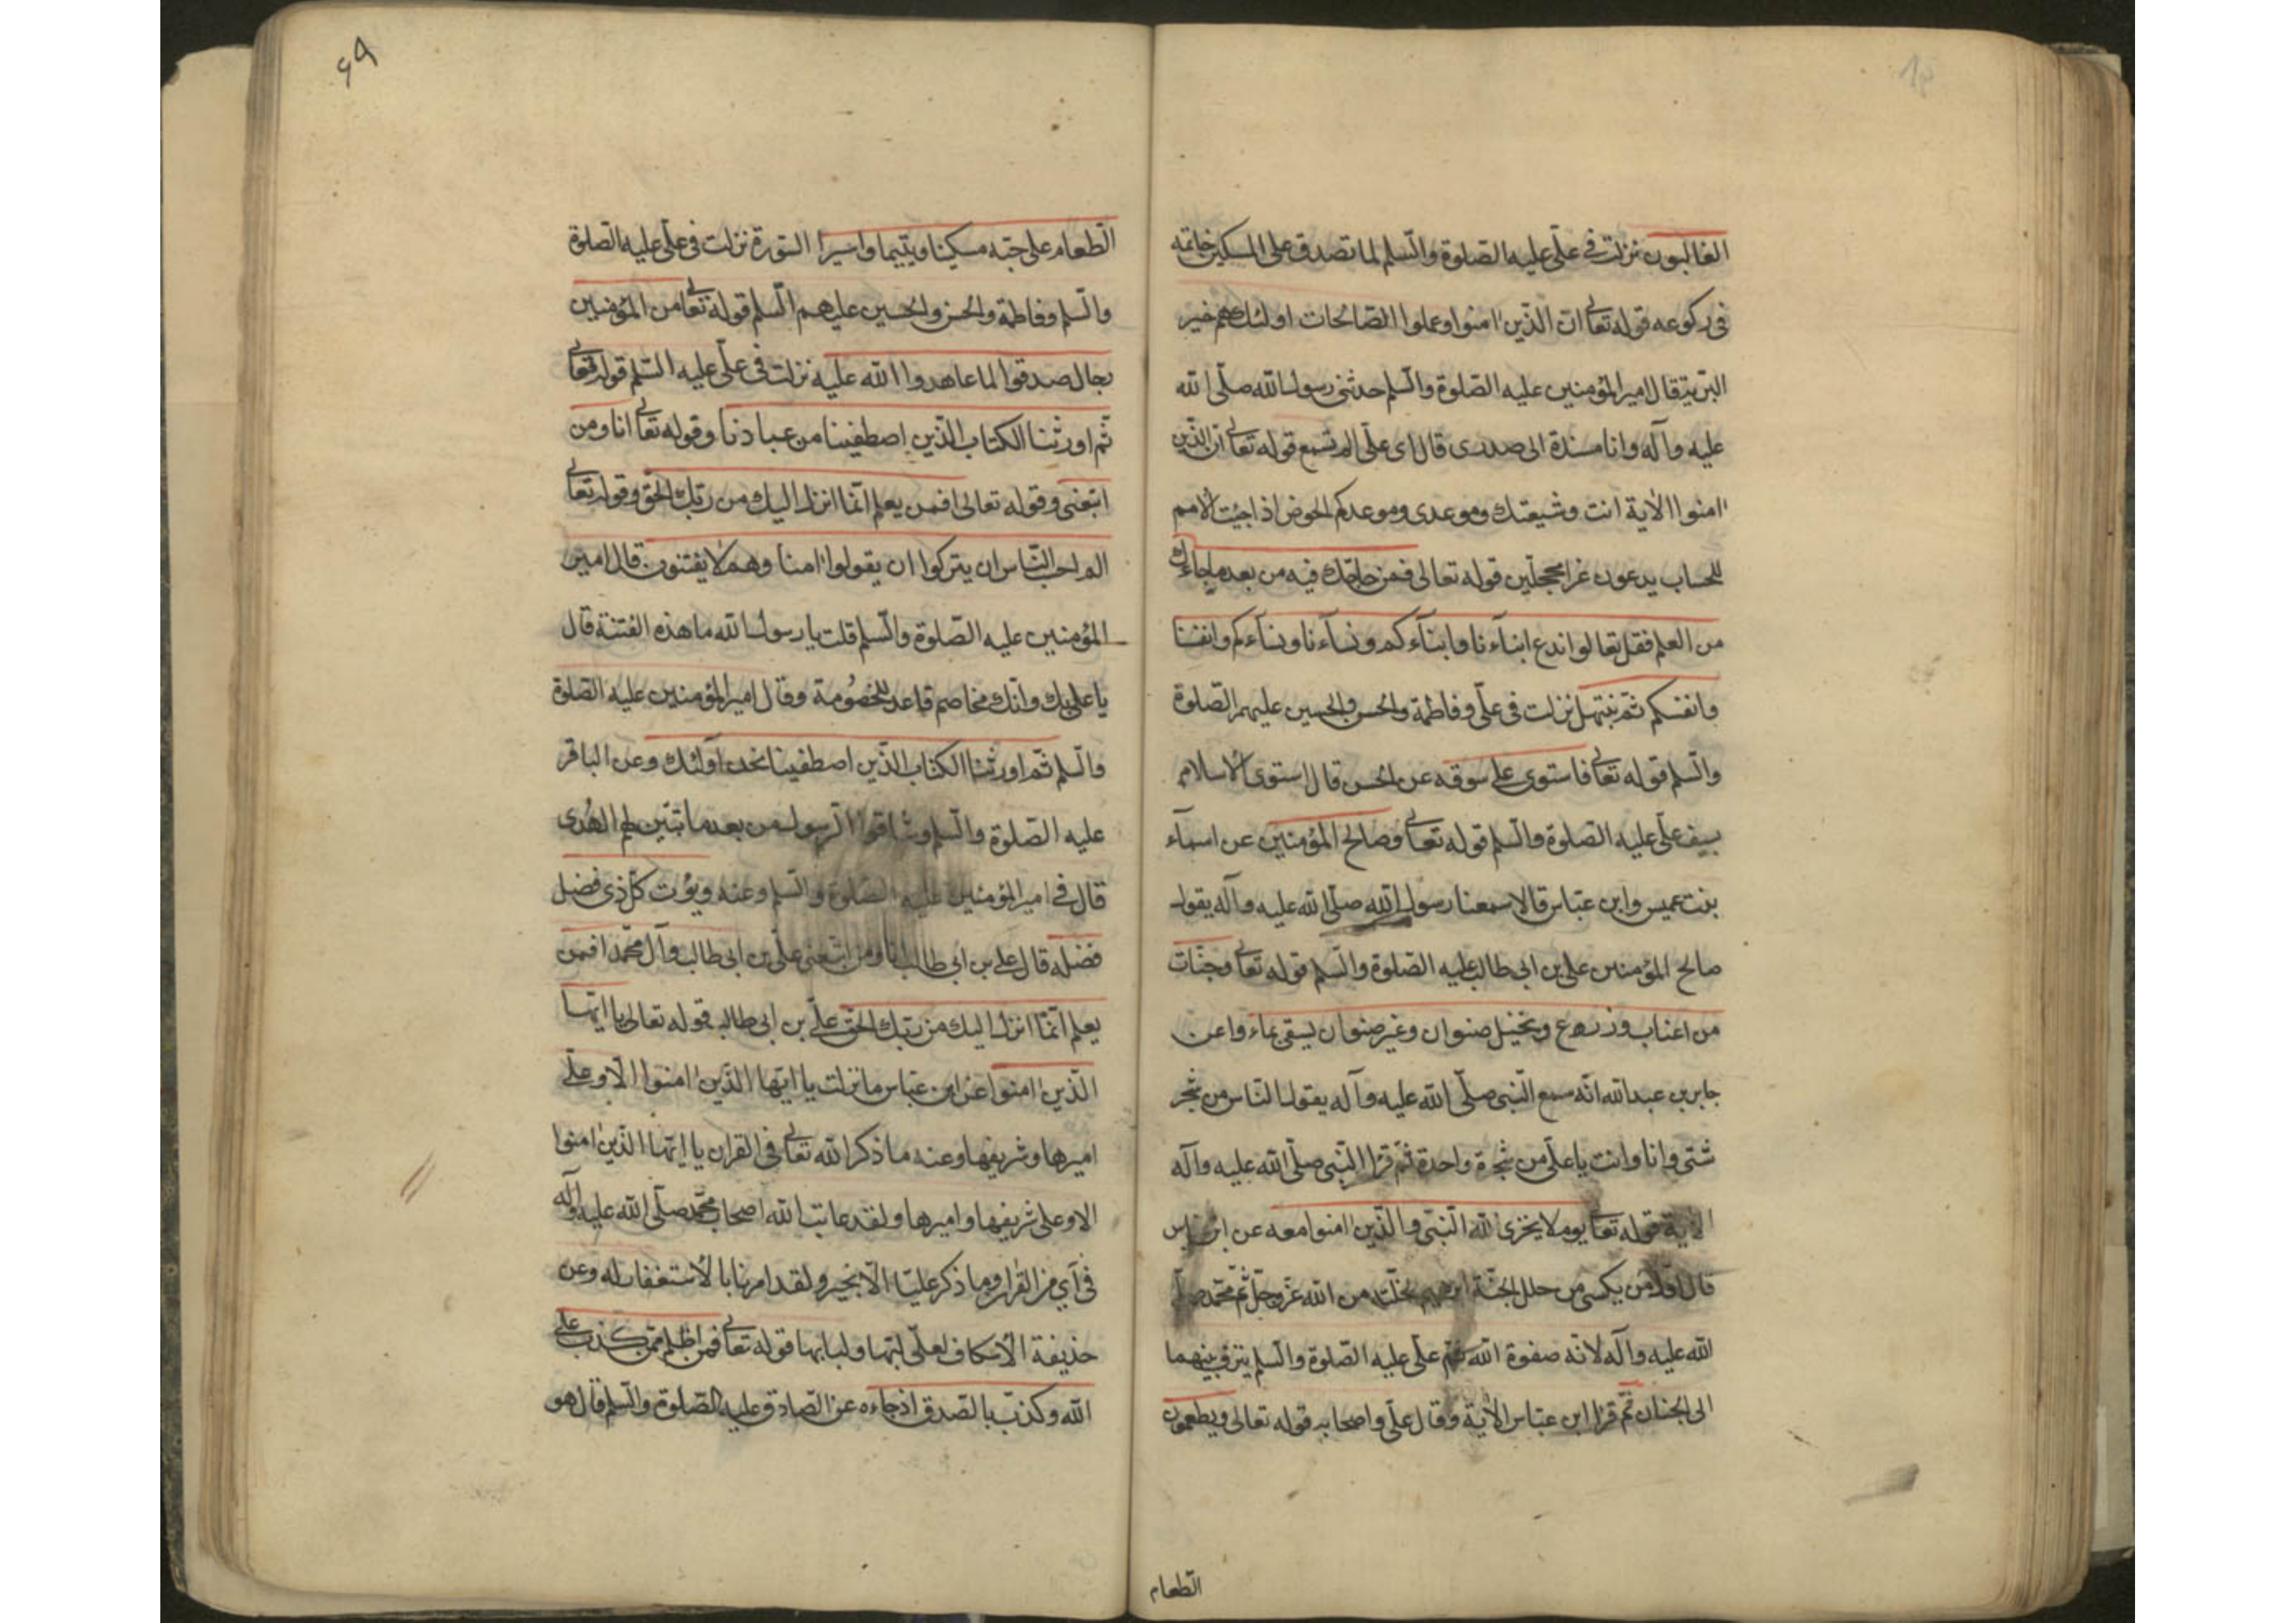 الغالبون نزلت في علي عليه الصلوة والسلم لما تصدق على المسكين خاتمه
في ركوعه قوله تعالى ان الذين امنوا وعملوا الصالحات اولئك هم خير
البرية قال امير المؤمنين عليه الصلوة والسلم حدثني رسول الله صلى الله
عليه وآله وانا مسنده الى صدرى قال اى على الم تسمع قوله تعالى ان الذين
امنوا الاية انت وشيعتك وموعدى وموعدكم الحوض اذا جيئت الامم
للحساب يدعون غرا محجلين قوله تعالى فمن حاجك فيه من بعد ما جاءك
من العلم فقل تعالوا ندع ابناءنا وابناءكم ونساءنا ونساءكم وانفسنا
وانفسكم ثم نبتهل نزلت في على وفاطمة والحسن والحسين عليهم الصلوة
والسلم قوله تعالى فاستوى على سوقه عن الحسن قال استوى الاسلام
بسيف على عليه الصلوة والسلم قوله تعالى وصالح المؤمنين عن اسماء
بنت عميس وابن عباس قالا سمعنا رسول الله صلى الله عليه وآله يقول
صالح المؤمنين على بن ابى طالب عليه الصلوة والسلم قوله تعالى وجنات
من اعناب وزروع ونخيل صنوان وغير صنوان يسقى بماء واعن
جابر بن عبدالله انه سمع النبى صلى الله عليه وآله يقول الناس من شجر
شتى وانا وانت يا على من شجرة واحدة ثم قرا النبى صلى الله عليه وآله
الاية قوله تعالى يوم لا يخزى الله النبى والذين امنوا معه عن ابن عباس
قال اول من يكسى من حلل الجنة ابرهيم بخلته من الله عز وجل ثم محمد صلى
الله عليه وآله لانه صفوة الله ثم على عليه الصلوة والسلم يزف بينهما
الى الجنان ثم قرا ابن عباس الاية وقال على واصحابه قوله تعالى ويطعمون
الطعام
٤٩
الطعام على حبه مسكينا ويتيما واسيرا السورة نزلت في على عليه الصلوة
والسلم وفاطمة والحسن والحسين عليهم السلم قوله تعالى من المؤمنين
رجال صدقوا لما عاهدوا الله عليه نزلت في على عليه السلم قوله تعالى
ثم اورثنا الكتاب الذين اصطفينا من عبادنا وقوله تعالى انا ومن
اتبعنى وقوله تعالى افمن يعلم انما انزل اليك من ربك الحق وقوله تعالى
الم احب الناس ان يتركوا ان يقولوا امنا وهم لا يفتنون قال امير
المؤمنين عليه الصلوة والسلم قلت يا رسول الله ما هذه الفتنة قال
يا على بك وانك مخاصم فاعد للخصومة وقال امير المؤمنين عليه الصلوة
والسلم ثم اورثنا الكتاب الذين اصطفينا نحن اولئك وعن الباقر
عليه الصلوة والسلم وشاقوا الرسول من بعد ما تبين لهم الهدى
قال في امير المؤمنين عليه الصلوة والسلم وعنه ويؤت كل ذى فضل
فضله قال على بن ابى طالب انا ومن اتبعنى على بن ابى طالب وآل محمد افمن
يعلم انما انزل اليك من ربك الحق على بن ابى طالب قوله تعالى يا ايها
الذين امنوا عن ابن عباس ما نزلت يا ايها الذين امنوا الا وعلى
اميرها وشريفها وعنه ما ذكر الله تعالى في القران يا ايها الذين امنوا
الا وعلى شريفها واميرها ولقد عاتب الله اصحاب محمد صلى الله عليه وآله
في آي من القران وما ذكر عليا الا بخير ولقد امرنا بالاستغفار له وعن
حذيفة الا كان لعلى لبها ولبابها قوله تعالى فمن اظلم ممن كذب على
الله وكذب بالصدق اذ جاءه عن الصادق عليه الصلوة والسلم قال هو